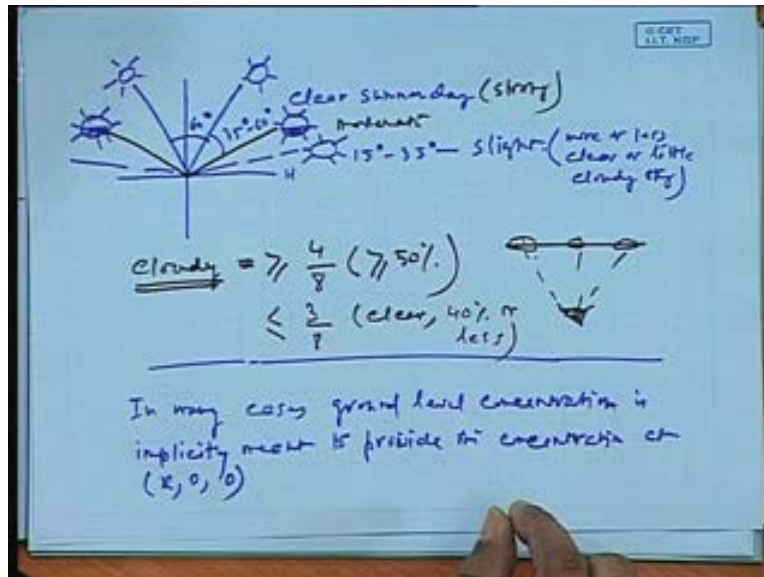 © CET
I.I.T. KGP
60°
35°-60°
clear summer day (strong)
moderate
H
15°-35° — slight (more or less
clear or little
cloudy sky)
cloudy = ≥ 4/8 (≥ 50%)
≤ 3/8 (clear, 40% or
less)
In many cases ground level concentration is
implicity meant to provide the concentration at
(x, 0, 0)